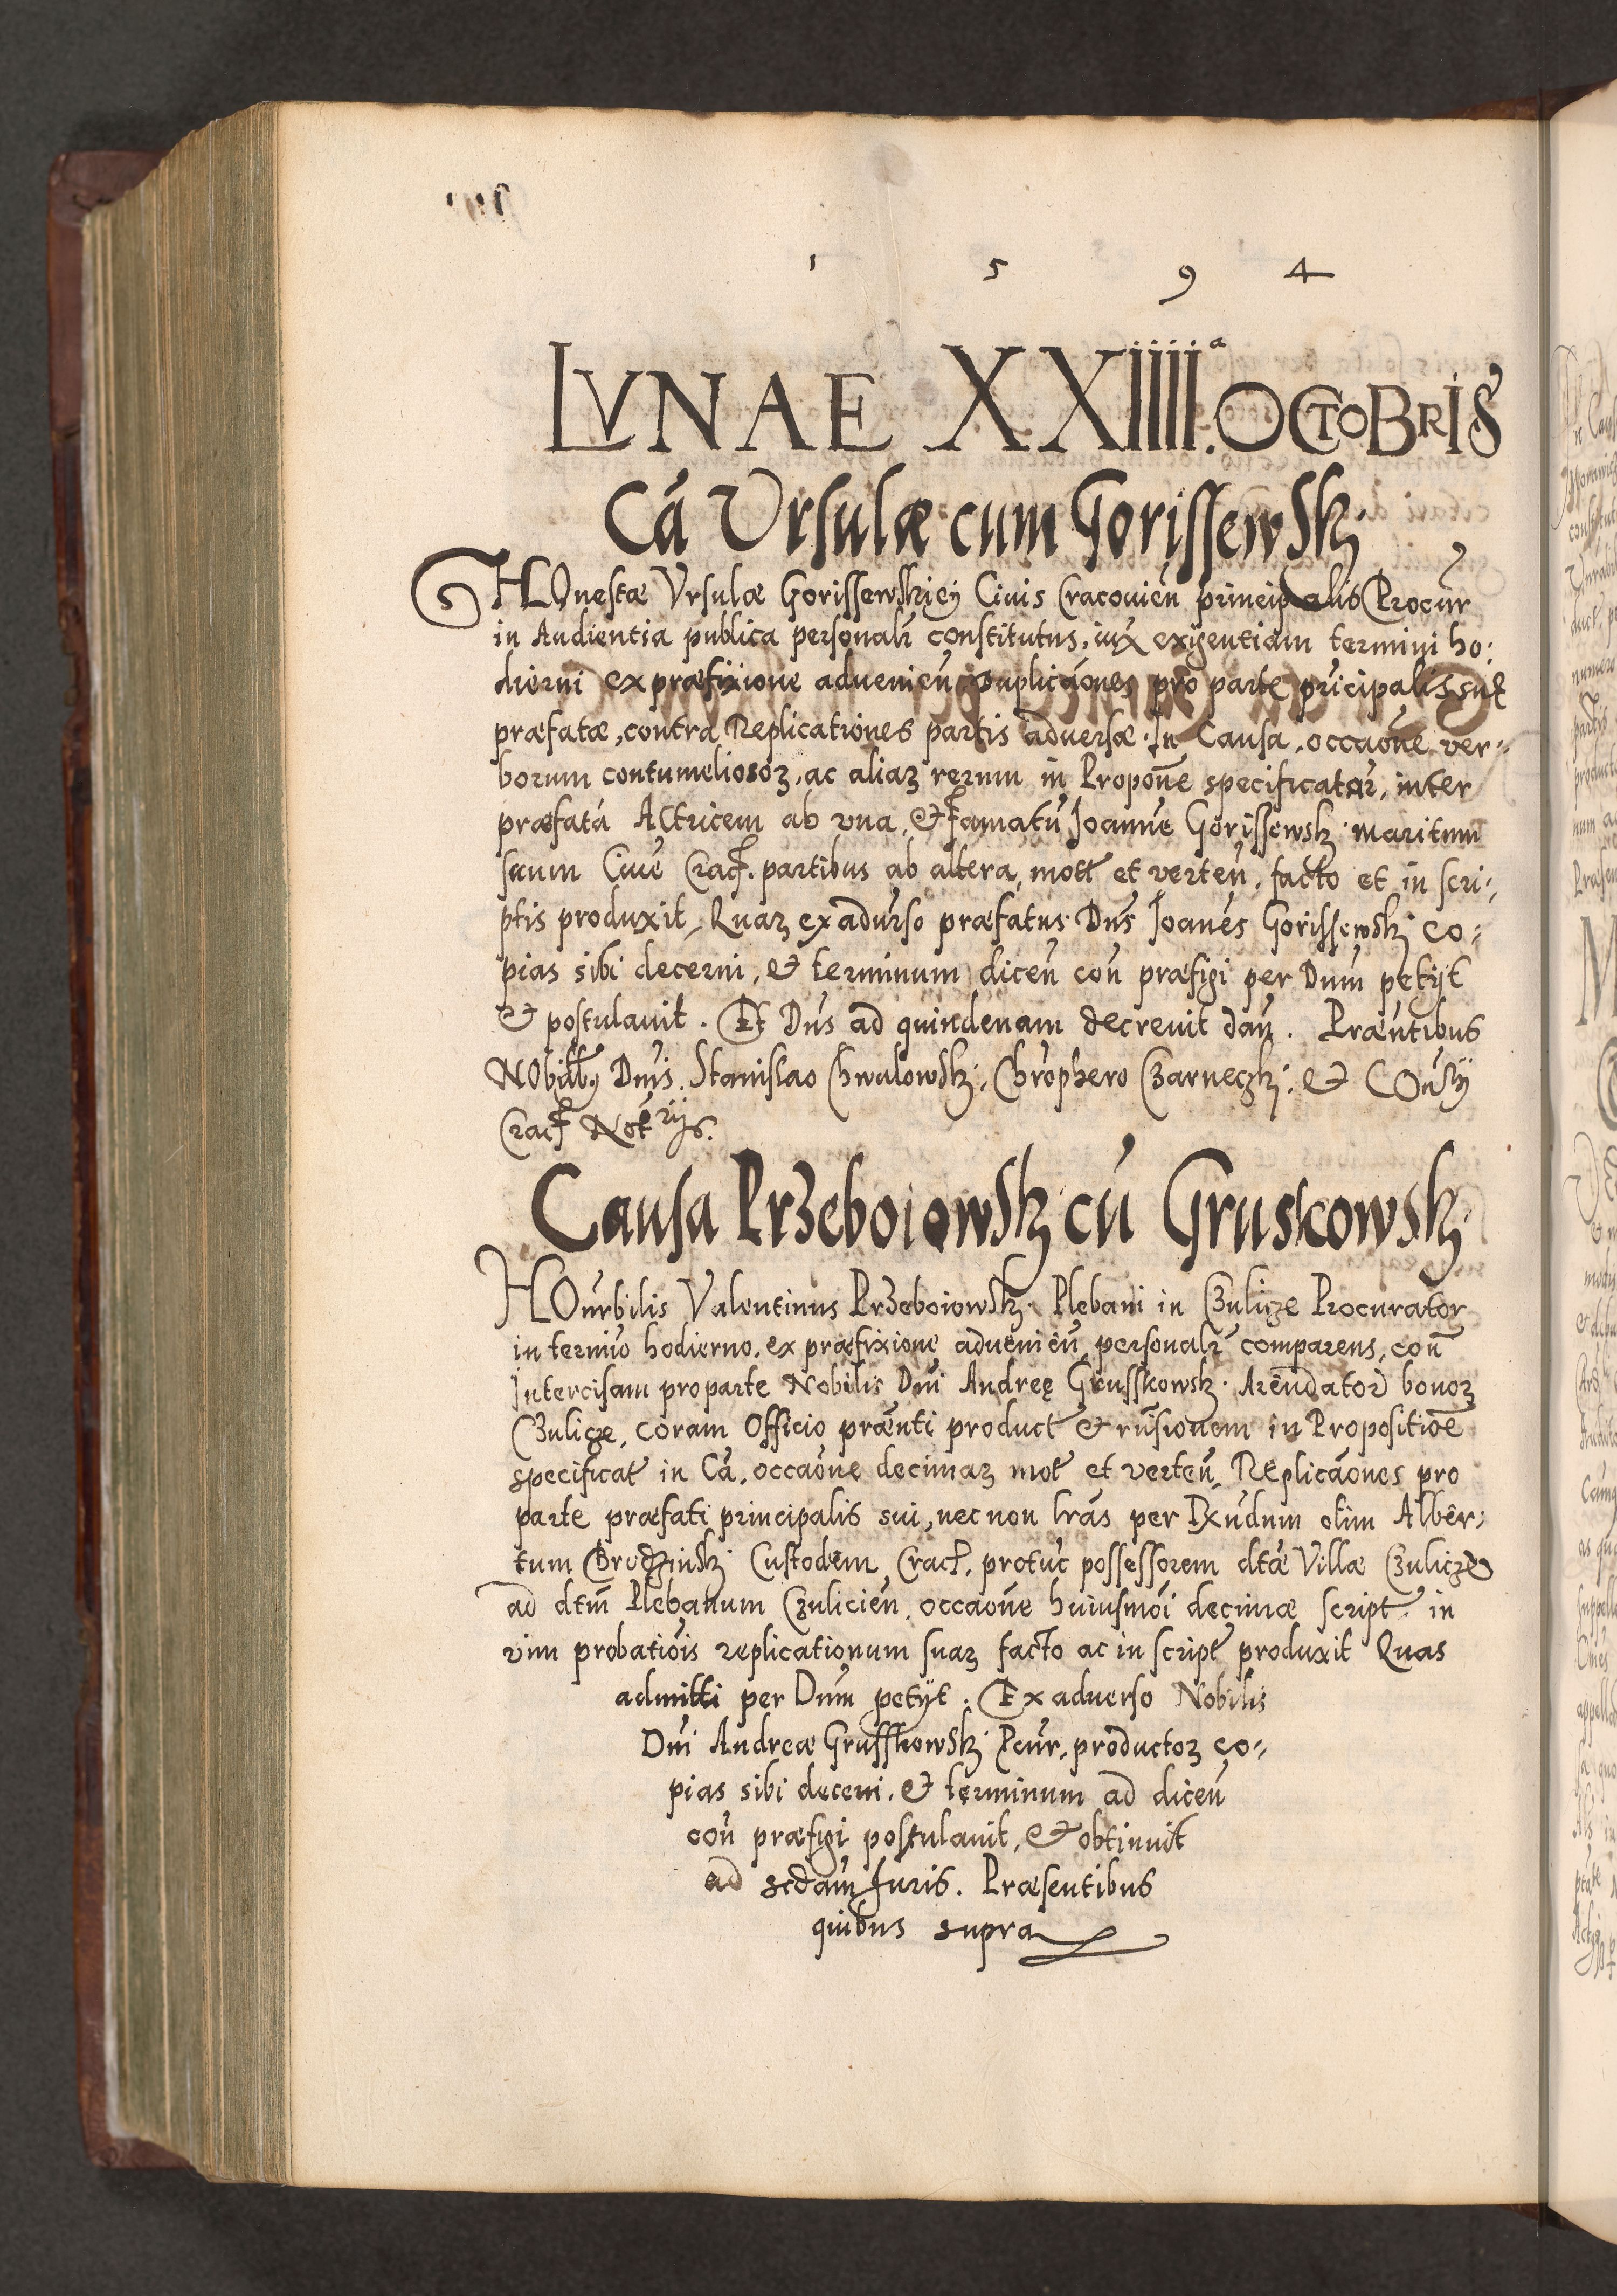 1 5 9 4
LVNAE XXIIIIa. OCTOBRIS
Cá Vrsulæ cum Gorissewsk:
HOnestæ Vrsulæ Gorissewskiey Ciuis Cracouień principalis Procur̃
in Audientia publica personalr̃ constitutus, iux̃ exigentiam termini ho:
dierni ex præfixione aduenień Duplicãones pro parte pricipalis suę
præfatæ, contra Replicationes partis aduersæ. In Causa, occaõne ver-
borum contumeliosoꝝ, ac aliaꝝ rerum in Propõne specificatar̃, inter
præfatá Actricem ab vna, & famatũ Joannẽ Gorissewsk: maritum
suum Ciuẽ Crac̃. partibus ab altera, mott̃ et verteñ, facto et in scri-
ptis produxit, Quaꝝ ex aduerso præfatus Dñs Joanes Gorissewsk: co-
pias sibi decerni, & terminum diceñ coñ præfigi per Dnum petÿt
& postulauit. Et Dñs ad quindenam decreuit dañ. Præñtibus
NObilib9 Dñis. Stanislao Chwalowsk:, Chrõphero Czarneczk: & COnsry
Crac̃ Notrijs.
Causa Przeboiowsk: cũ Gruskowsk:
HOnrbilis Valentinus Przeboiowsk: Plebani in Czulicze Procurator
in termĩo hodierno, ex præfixione aduenień, personalr̃ comparens, coñ
Intercisam pro parte Nobilis Dñi Andreę Grusskowsk: Areñdator̃ bonoꝝ
Czulicze, coram Officio præñti product̃ & riũsionem in Propositiõe
specificat̃ in Cá, occaõne decimaꝝ mot̃ et verteñ, Replicãones pro
parte præfati principalis sui, nec non lr̃as per Rx̃ndum olim Alber-
tum Brudzinsk: Custodem Crac̃. protuc̃ possessorem dtæ Villæ Czulicze
ad dtm̃ Plebanum Czulicień, occaõne huiusmõi decimæ script̃, in
vim probatiõis replicationum suaꝝ facto ac in script̃ produxit Quas
admitti per Dnum petÿt. Ex aduerso Nobilis
Dñi Andreæ Grusskowsk: Pcur̃, productoꝝ co-
pias sibi decerni, & terminum ad diceñ
coñ præfigi postulauit, & obtinuit
ad scdãm Juris. Præsentibus
quibus supra